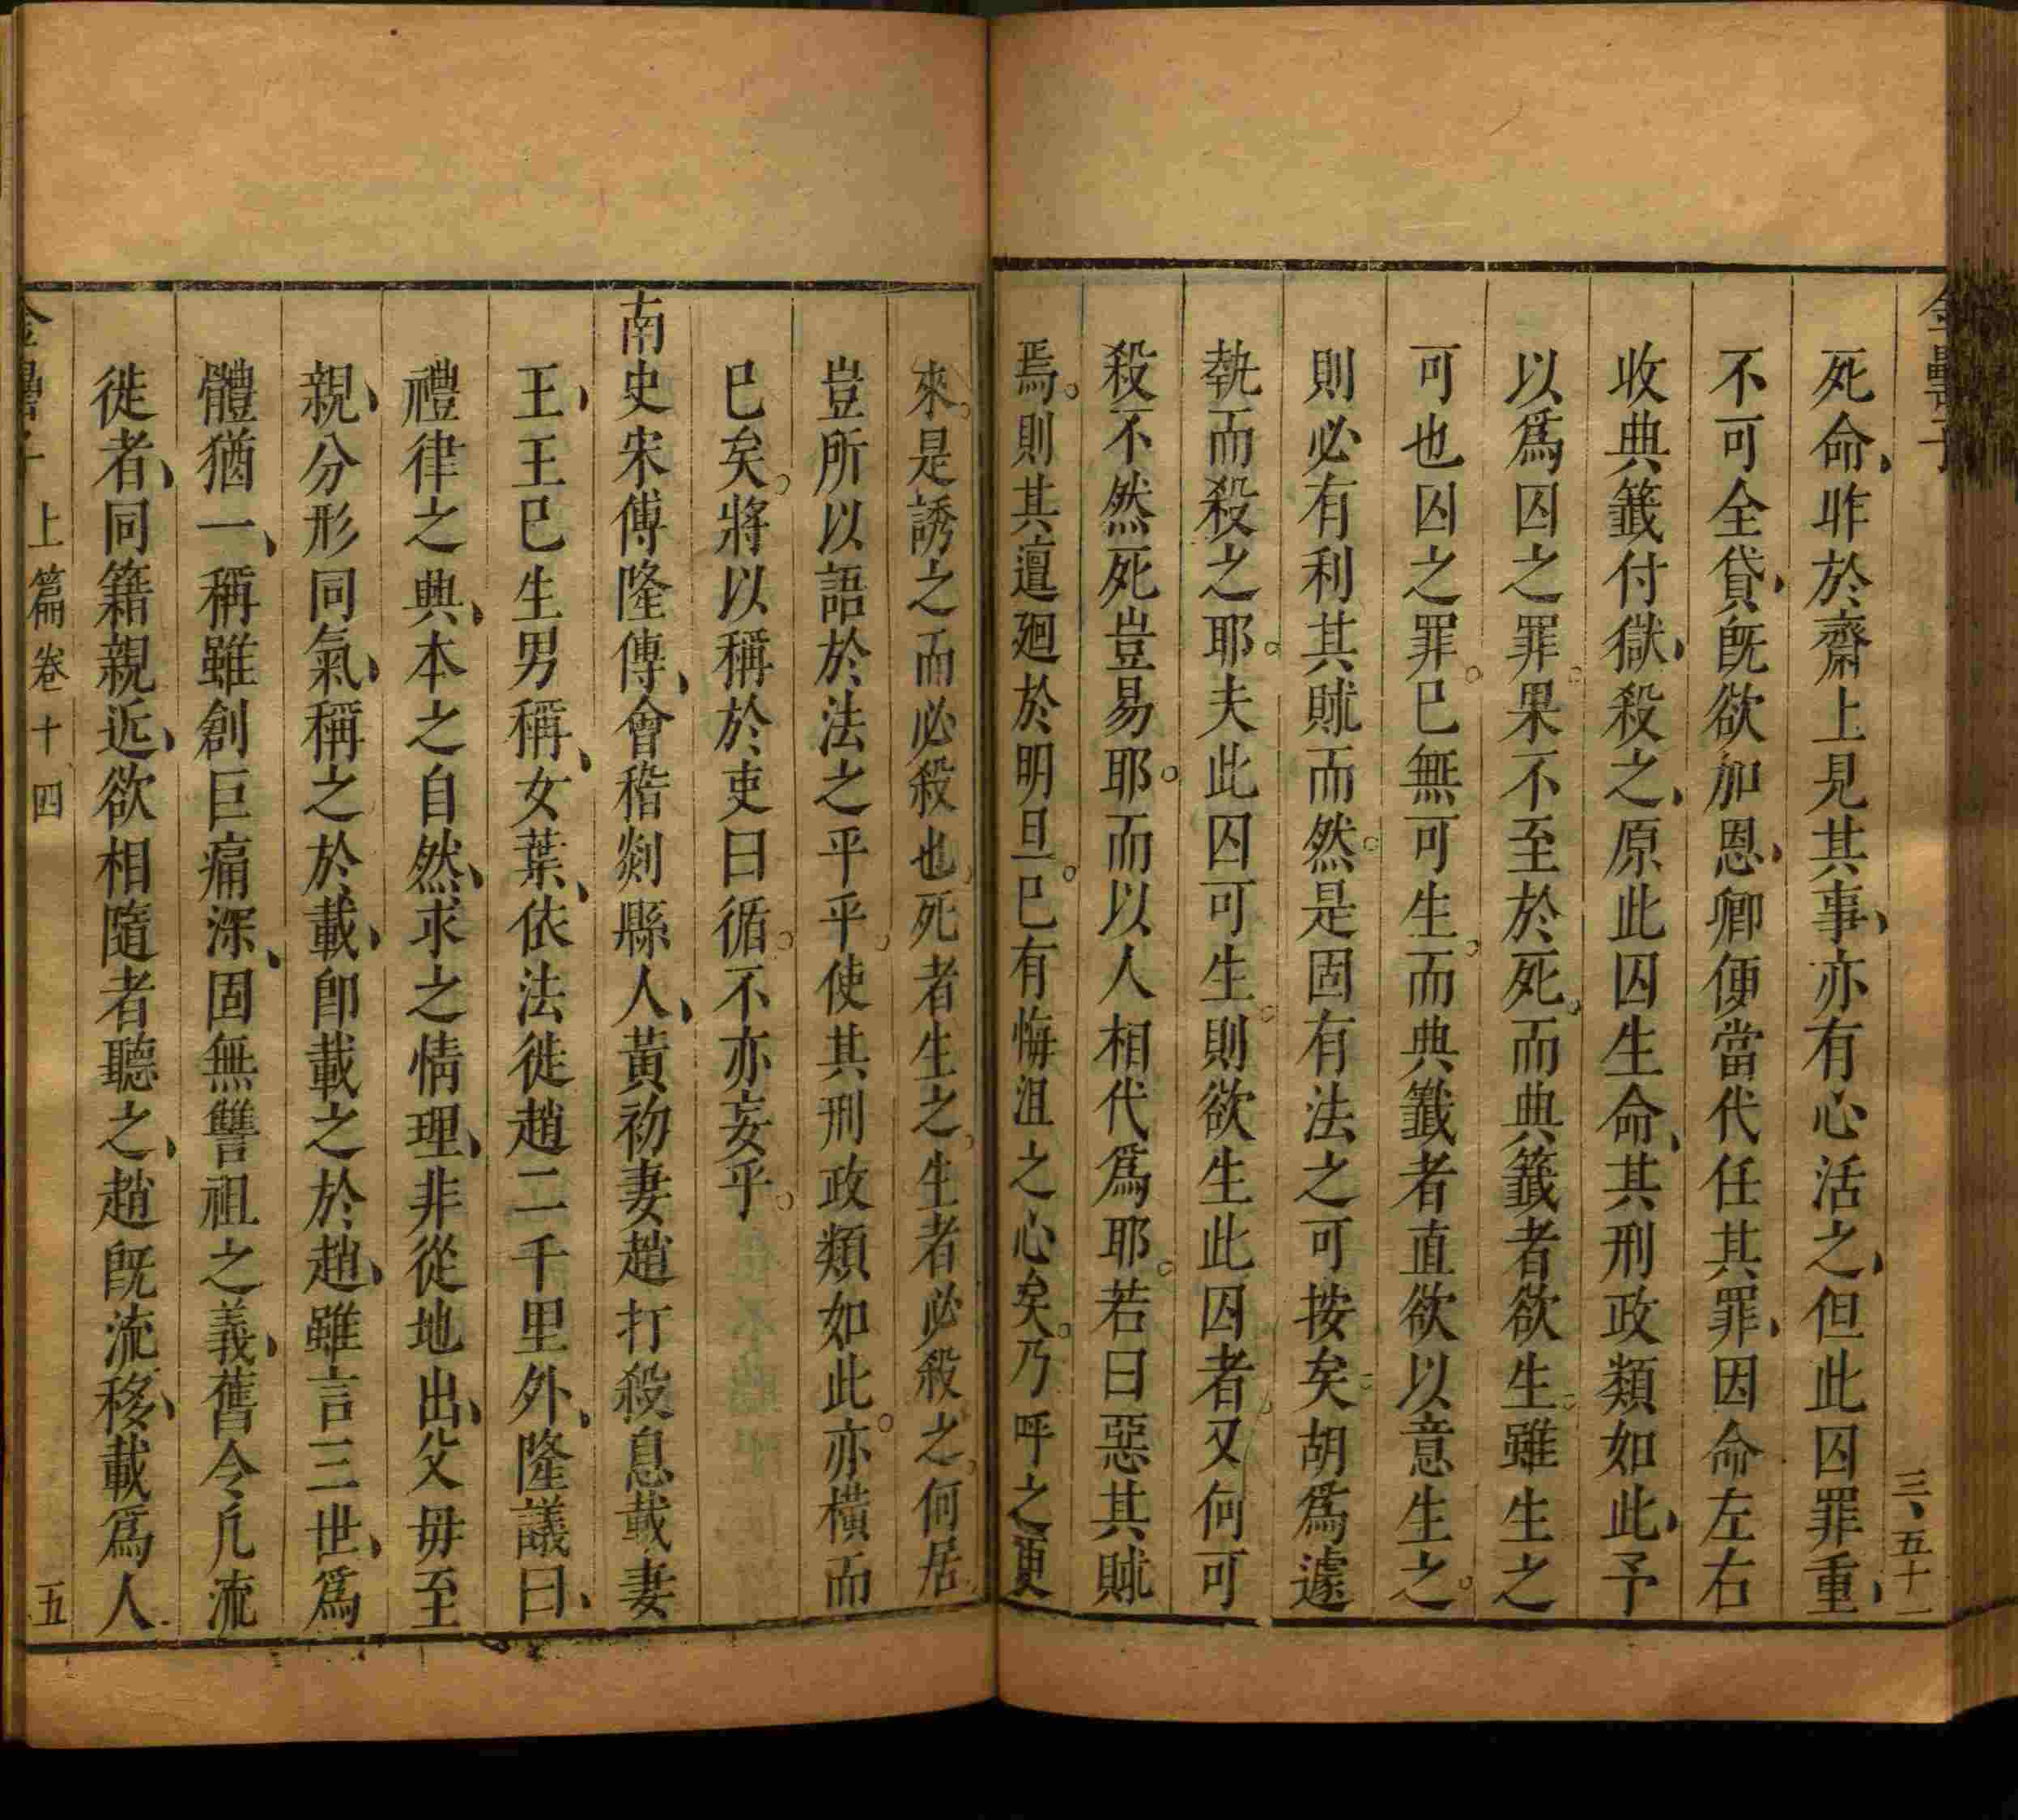 三、五十一
死命、昨於齋上見其事、亦有心活之、但此囚罪重、
不可全貸、旣欲加恩、卿便當代任其罪、因命左右
收典籤付獄、殺之、原此囚生命、其刑政類如此、予
以爲囚之罪。果不至於死。而典籤者欲生。雖生之
可也囚之罪。巳無可生。而典籤者直欲以意生之。
則必有利其賕而然。是固有法之可按矣。胡爲遽
執而殺之耶。夫此囚可生。則欲生此囚者。又何可
殺不然死豈易耶。而以人相代爲耶。若曰惡其賕
焉。則其邅廻於明旦。巳有悔沮之心矣。乃呼之更
來。是誘之而必殺也。死者生之。生者必殺之。何居。
豈所以語於法之平乎。使其刑政類如此。亦橫而
巳矣。將以稱於吏曰循。不亦妄乎。
南史宋傅隆傳、會稽剡縣人、黃初妻趙打殺息載妻
王、王巳生男稱、女葉、依法徙趙二千里外、隆議曰、
禮律之典、本之自然、求之情理、非從地出、父毋至
親、分形同氣、稱之於載、卽載之於趙、雖言三世、爲
體猶一、稱雖創巨痛深、固無讐祖之義、舊令凡流
徙者、同籍親近、欲相隨者聽之、趙旣流移、載爲人
上篇卷十四
五